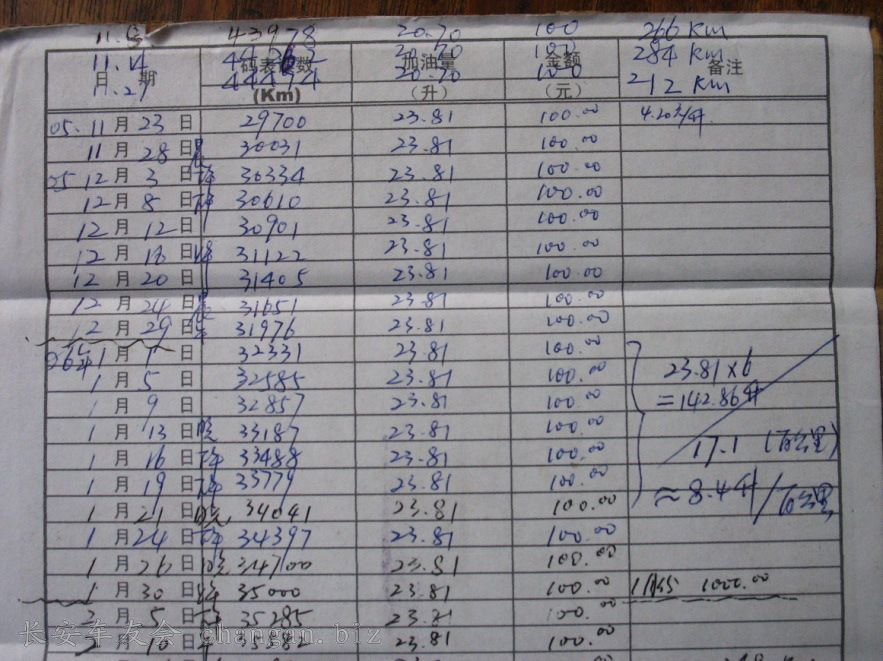 43978 20.70 100 266 Km
11.14 20.70 100 284 Km
日 期 码表 数 加油量 金额 备注
11.27 20.70 100 212 Km
(Km) (升) (元)
05. 11月23日 29700 23.81 100.00
11月28日晨 30031 23.81 100.00
05 12月3日 30334 23.81 100.00
12月8日 30610 23.81 100.00
12月12日 30901 23.81 100.00
12月 日 31122 23.81 100.00
12月20日 31405 23.81 100.00
12月24日晨 31651 23.81 100.00
12月29日 31976 23.81 100.00
06年1月1日 32331 23.81 100.00
1月5日 32585 23.81 100.00 23.81×6
1月9日 32857 23.81 100.00 =142.86升
1月13日晚 33187 23.81 100.00
1月16日 33488 23.81 100.00 17.1 (百公里)
1月19日 33779 23.81 100.00
1月21日晚 34041 23.81 100.00 ≈8.4升/百公里
1月24日 34397 23.81 100.00
1月26日 34700 23.81 100.00
1月30日 35000 23.81 100.00 1000.00
2月5日 35285 23.81 100.00
2月10日 23.81 100.00
长安车友会 changan.biz